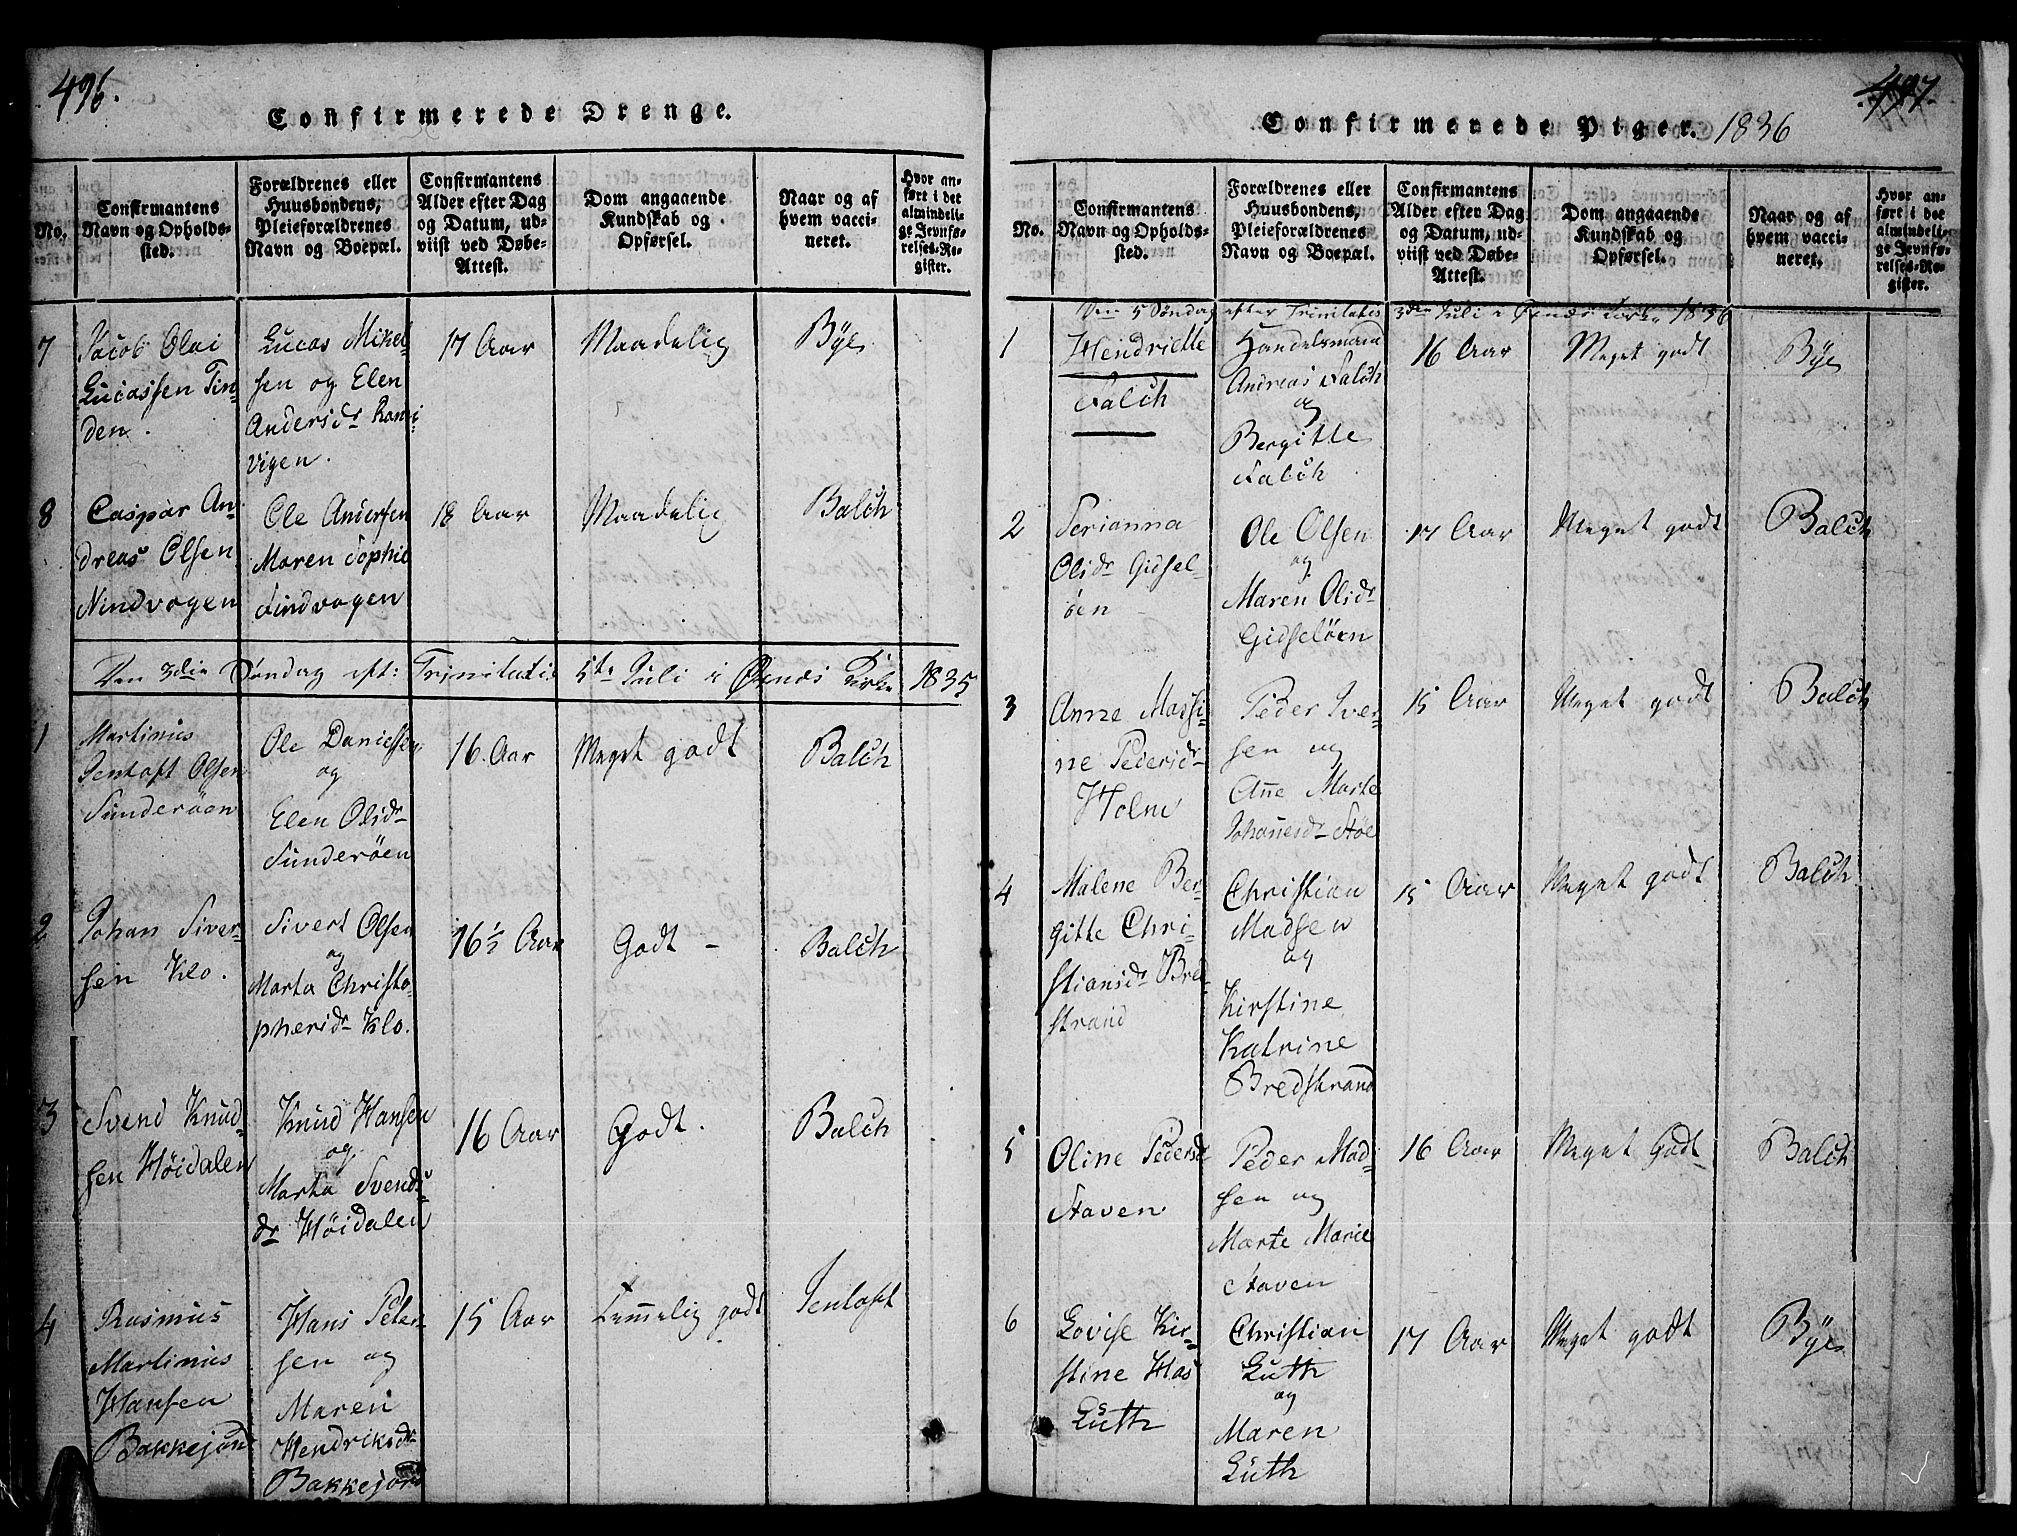 496.
Confirmerede Drenge.
No.
Confirmantens
Navn og Opholds-
sted.
Forældrenes eller
Huusbondens,
Pleieforældrenes
Navn og Boepæl.
Confirmantens
Alder efter Dag
og Datum, ud-
viist ved Døbe-
Attest.
Dom angaaende
Kundskab og
Opførsel.
Naar og af
hvem vacci-
neret.
Hvor an-
ført i det
almindeli-
ge Jevnfø-
relses-Re-
gister.
7
Jacob Olai
Lucassen Tin-
den.
Lucas Mikel-
sen og Elen
Andersdr
vigen.
17 Aar
Maadelig
Bye
8
Caspar An-
dreas Olsen
Vindvogen
Ole Andersen
Maren Sophie
Findvogen
18 Aar
Maadelig
Balch
Den 3die Søndag eft: Trinitatis 5te Juli i Øxnæs Kirke 1835
1
Martinus
Jentoft Olsen
Sunderøen
Ole Danielsen
og
Elen Olsdr
Sunderøen
16 Aar
Meget godt
Balch
2
Johan Siver-
sen Klo.
Sivert Olsen
og
Marta Christo-
phersdr Klo.
16½ Aar
Godt -
Balch
3
Svend Knud-
sen Høidalen
Knud Hansen
og
Marta Svends-
dr Høidalen
16 Aar
Godt.
Balch
4
Rasmus
Martinus
Hansen
Bakkejord
Hans Peter-
sen og
Maren
Hendriksdr
Bakkejord
15 Aar
Temmelig godt
Jentoft
497.
Confirmerede Piger. 1836
No.
Confirmantens
Navn og Opholds-
sted.
Forældrenes eller
Huusbondens,
Pleieforældrenes
Navn og Boepæl.
Confirmantens
Alder efter Dag
og Datum, ud-
viist ved Døbe-
Attest.
Dom angaaende
Kundskab og
Opførsel.
Naar og af
hvem vacci-
neret.
Hvor an-
ført i det
almindeli-
ge Jevnfø-
relses-Re-
gister.
Den 5 Søndag efter Trinitatis 3die Juli i Øxnæs Kirke 1836
1
Hendriette
Falch
Handelsmand
Andreas Falch
og
Bergitte
Falch
16 Aar
Meget godt
Bye
2
Perianna
Olsdr Gidsel-
öen
Ole Olsen
og
Maren Olsdr
Gidselöen
17 Aar
Meget godt
Balch
3
Anne Massi-
ne Pedersdr
Holm
Peder Iver-
sen og
Anne Marte
Johannesdr Støe
15 Aar
Meget godt
Balch
4
Malene Ber-
gitte Chri-
stiansdr Bred-
strand
Christian
Madsen
og
Kirstine
Katrine
Bredstrand
15 Aar
Meget godt
Balch
5
Oline Pedersdr
Staven
Peder Mad-
sen og
Marte Marie
Staven
16 Aar
Meget Godt
Balch
6
Lovise Kir-
stine Haas
Lüth
Christian
Lüth
og
Maren
Lüth
17 Aar
Meget godt
Bye